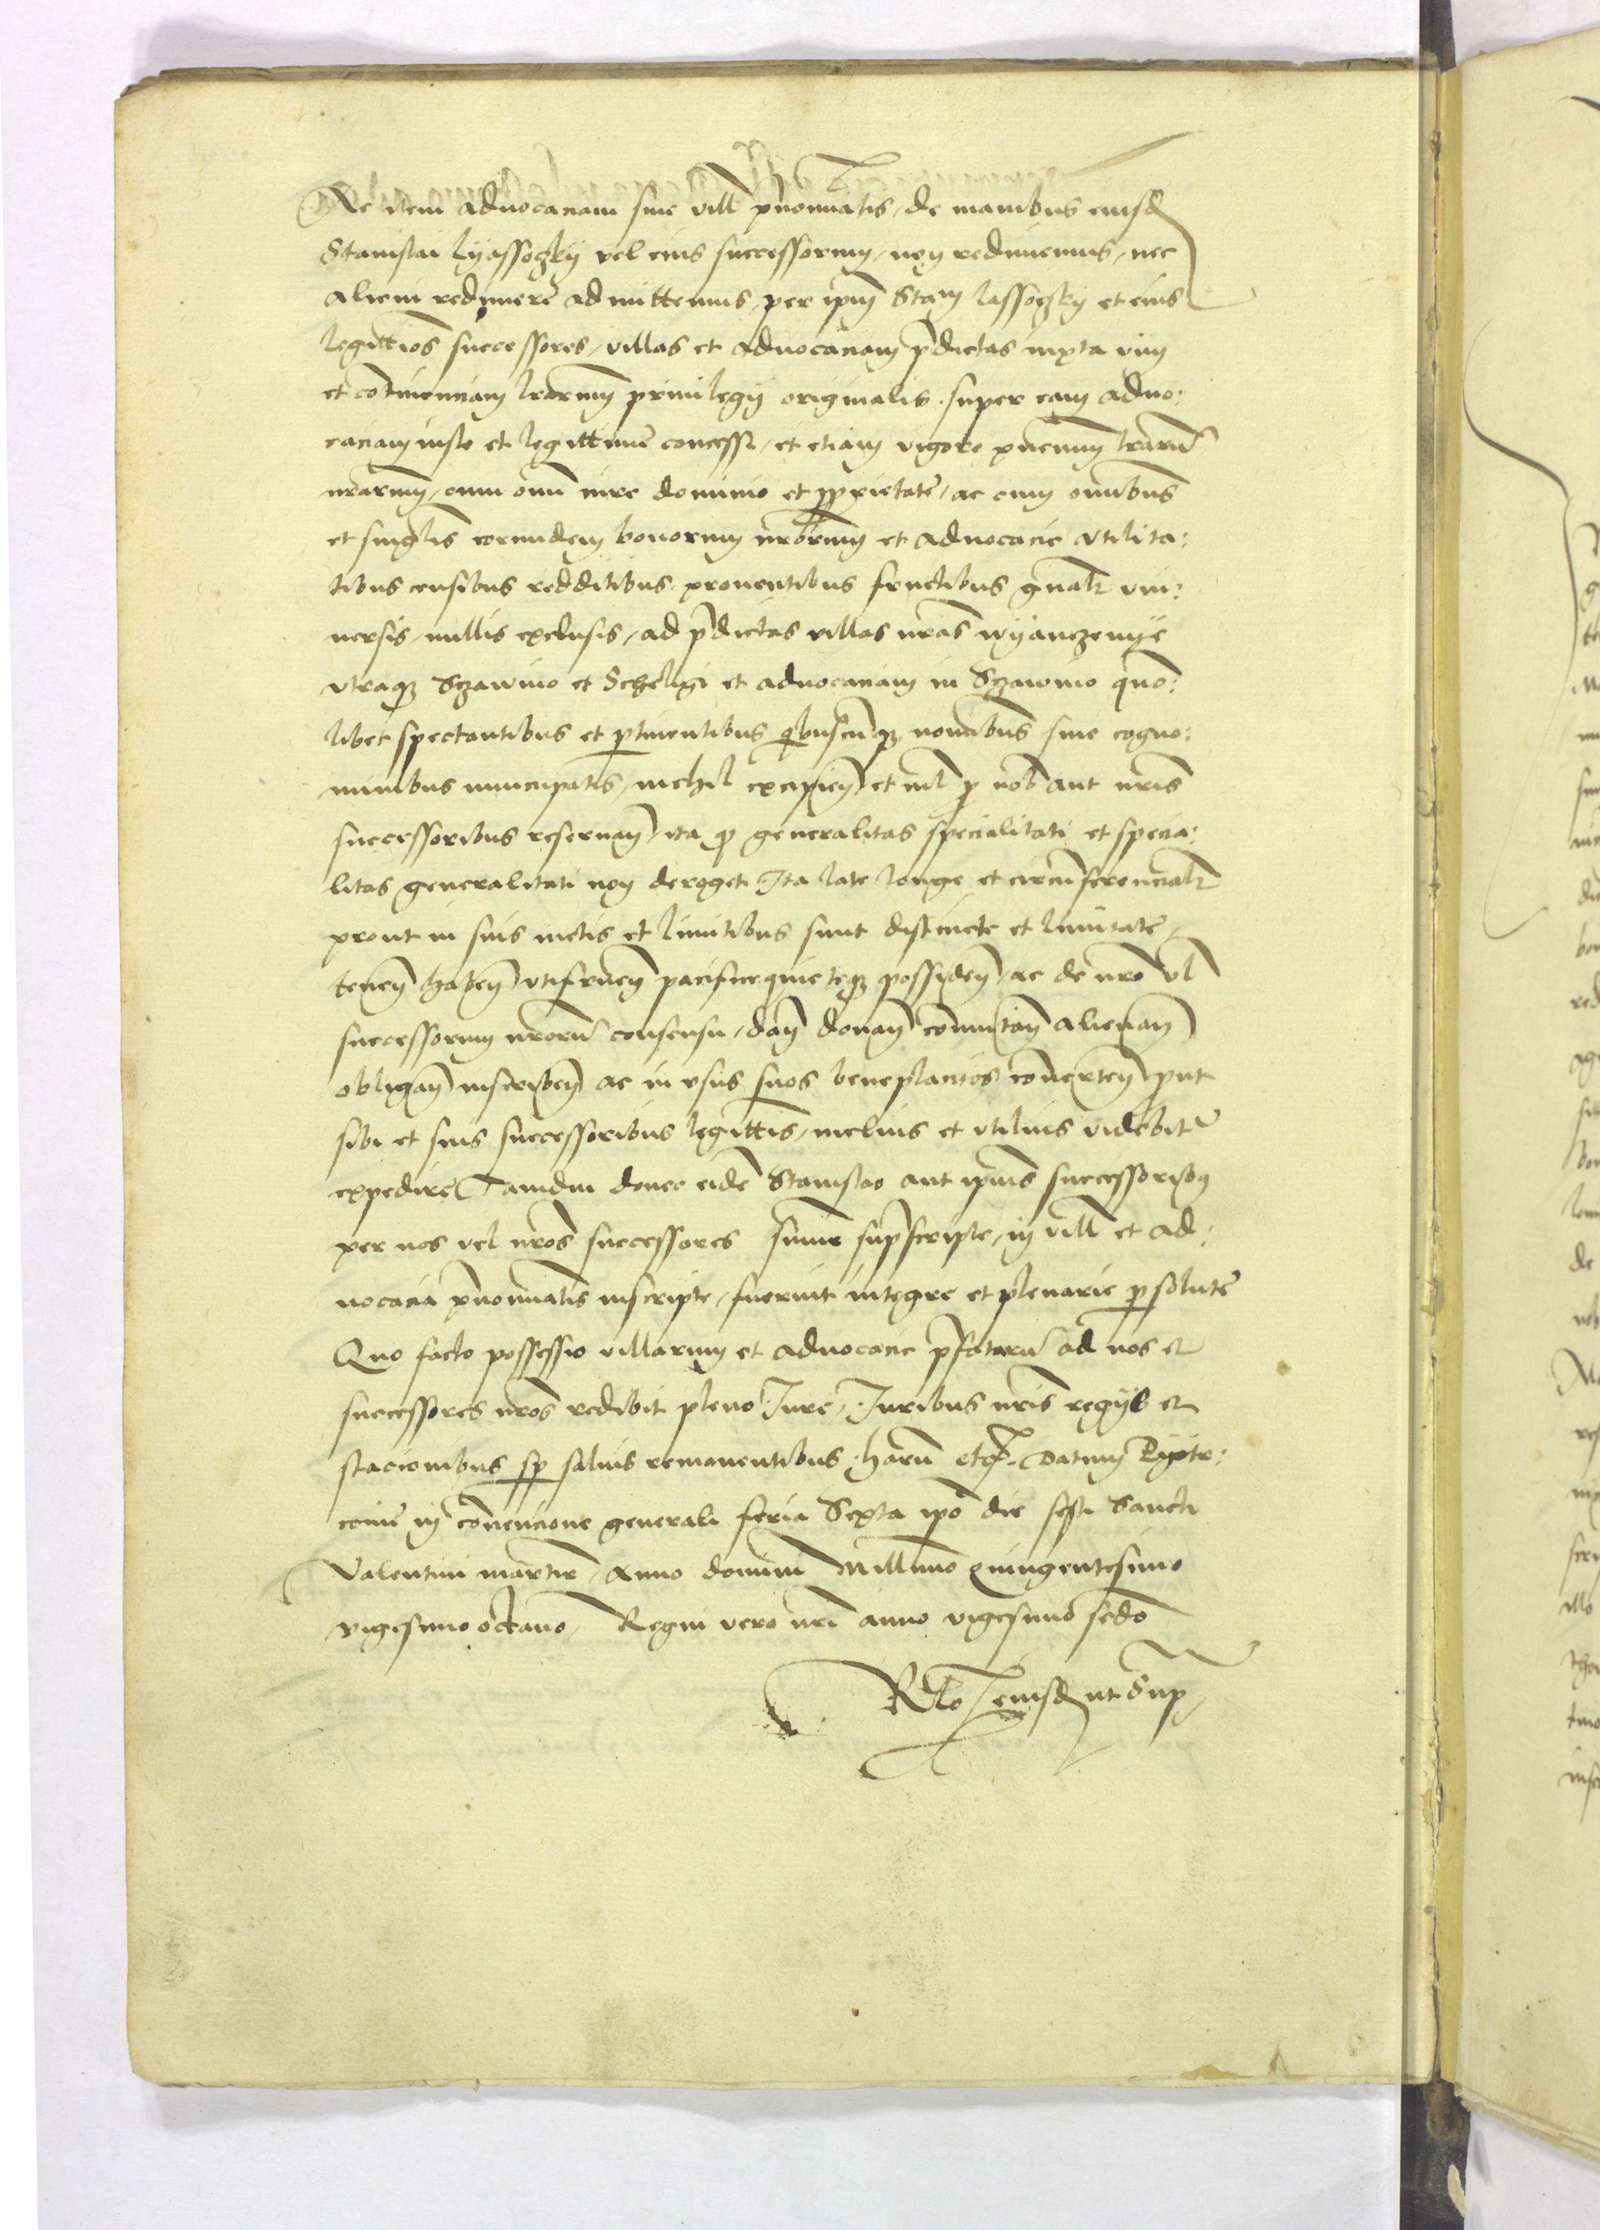 Ac item advocaciam sive vill prenominatis, de manibus eiusd
Stanislai Lyassoczky vel eius successorum, non redimemus, nec
alicui redimere admittemus, per ipm Stam Lassoczky et eius
legittios successores, villas et advocaciam pdictas iuxta vim
et continenciam lrarum privilegij originalis super eam advo:
caciam iuste et legittime concessi, et etiam vigore pncium lrarum
nrarum, cum omi iure dominio et pprietate, ac cum omibus
et singlis eorundem bonorum nrorum et advocacie utilita:
tibus censibus redditibus proventibus fructibus gnalr uni:
versis, nullis exclusis, ad pdictas villas nras Wyanczemye
utraqz Szawino et Scheligi et advocaciam in Szawino quo:
libet spectantibus et ptinentibus qbuscumqz nominibus sive cogno:
minibus nuncupatis, nichil excipien et nil p nob aut nris
successoribus reservan, ita qd generalitas specialitati et specia:
litas generalitati non deroget Ita late longe et circumferencialr
prout in suis metis et limitibus sunt distincte et limitate,
tenen haben utifruen pacifice quieteqz possiden, ac de nro vl
successorum nrorum consensu, dan donan commutan alienan
obligan inscriben ac in usus suos beneplacitos converten put
sibi et suis successoribus legittis, melius et utilius videbitr
expedire Tamdiu donec eidem Stanislao aut ipius successoribus
per nos vel nros successores summe supscripte, in vill et ad:
vocacia prenominatis inscripte, fuerint integre et plenarie psolute
Quo facto possessio villarum et advocacie pfatarum ad nos et
successores nros redibit pleno Jure, Juribus nris regijs et
stacionibus sp salvis remanentibus, harum etc. Datum Pijotr:
covie in convencione generali feria Sexta ipo die festi Sancti
Valentini martir, Anno domini Millimo quingentesimo
vigesimo octavo, Regni vero nri anno vigesimo secdo
Rlo eiusd ut Sup